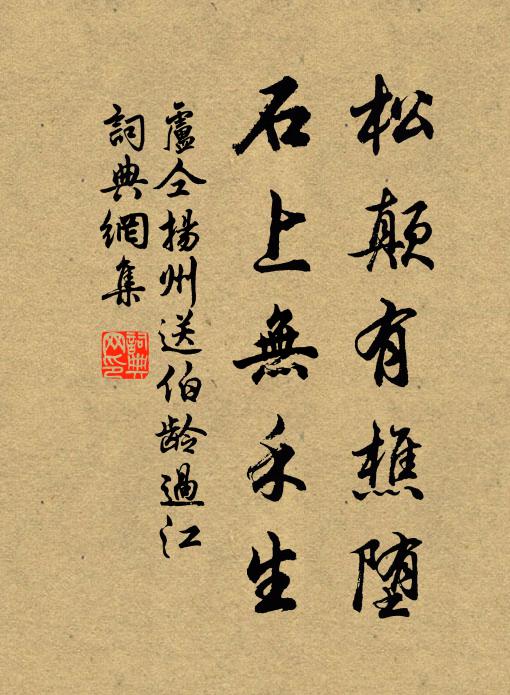 松顛有樵堕
石上無禾生
盧仝揚州送伯齡過江
詞典網集
詞典網印